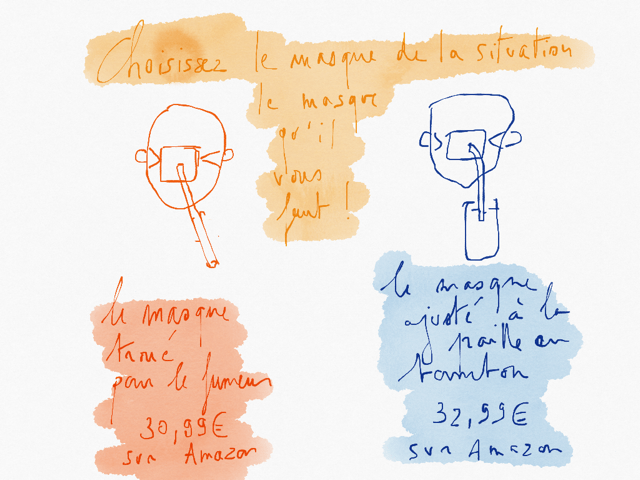 Choisissez le masque de la situation
le masque
qu'il
vous
faut !
le masque
troué
pour le fumeur
30,99€
sur Amazon
le masque
ajusté à la
paille en
sur Amazon
32,99€